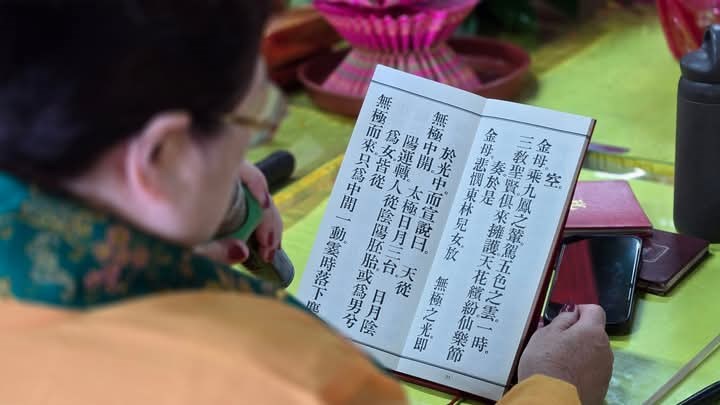 空。
金母。乘九鳳之輦。駕五色之雲。一時。
三教聖賢。俱來擁護。天花繽紛。仙樂節
奏。於是
金母。悲憫東林兒女。放 無極之光。即
於光中。而宣說曰。 天從
無極中開。太極日月三台。 日月陰
陽運 人從陰陽胚胎。或為男兮
為女。皆從
無極而來。只為中間一動。霎時落下塵